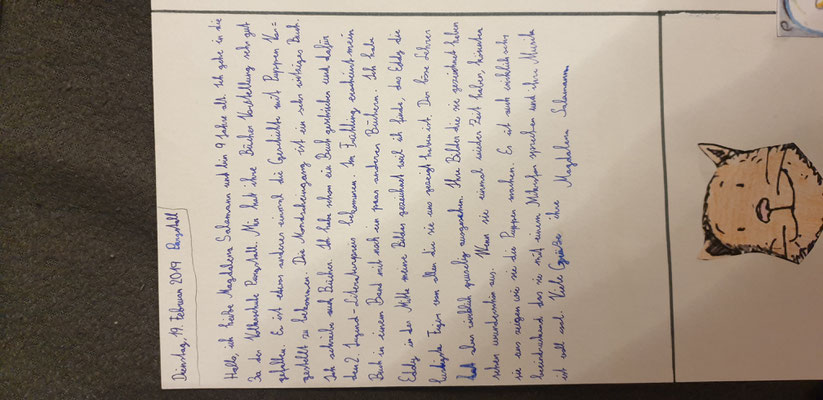 Dienstag, 19. Februar 2019 Purgstall
Hallo, ich heiße Magdalena Salamann und bin 9 Jahre alt. Ich gehe in die
3a der Volksschule Purgstall. Mir hat ihre Bücher Vorstellung sehr gut
gefallen. Es ist etwas anderes einmal die Geschichte mit Puppen Vor=
gestellt zu bekommen. Die Mondscheingang ist ein sehr witziges Buch.
Ich schreibe auch Bücher. Ich habe schon ein Buch geschrieben und dafür
den 2. Jugend-Literaturpreis bekommen. Im Frühling erscheint mein
Buch in einem Band mit noch ein paar anderen Büchern. Ich habe
Eddy in der Mitte meines Bildes gezeichnet weil ich finde, das Eddy die
lustigste Figur von allen die sie uns gezeigt haben ist. Der böse Lehrer
hat aber wirklich gruselig ausgesehen. Ihre Bilder die sie gezeichnet haben
sehen wunderschön aus. Wenn sie einmal wieder Zeit haben, könnten
sie uns zeigen wie sie die Puppen machen. Es ist auch wirklich sehr
beeindruckend das sie mit einem Mikrofon sprechen und ihre Musik
ist toll auch. Viele Grüße ihre Magdalena Salamann